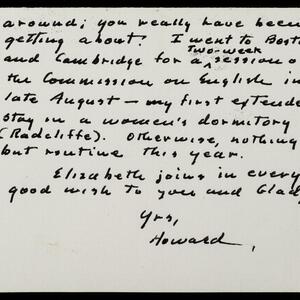 around; you really have been
getting about! I went to Bost
Two-week
and Cambridge for a ^ session o
the Commission on English in
late August — my first extende
stay in a women's dormitory
(Radcliffe). Otherwise, nothing
but routine this year.
Elizabeth joins in every
good wish to you and Glad
Yrs,
Howard,